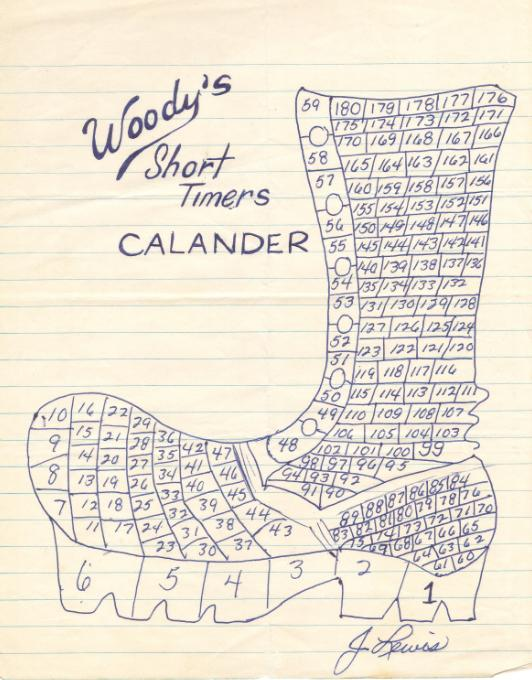 Woody's
Short
Timers
CALANDER
59 180 179 178 177 176
175 174 173 172 171
170 169 168 167 166
58 165 164 163 162 161
57 160 159 158 157 156
155 154 153 152 151
56 150 149 148 147 146
55 145 144 143 142 141
140 139 138 137 136
54 135 134 133 132
53 131 130 129 128
127 126 125 124
52 123 122 121 120
51 119 118 117 116
50 115 114 113 112 111
49 110 109 108 107
106 105 104 103
48 102 101 100 99
98 97 96 95
94 93 92
91 90
10 16 22 29 36 42 47
9 15 21 28 35 41 46
8 14 20 27 34 40 45
7 13 19 26 33 39 44
12 18 25 32 38 43
11 17 24 31 37
23 30
89 88 87 86 85 84
83 82 81 80 79 78 76
75 74 73 72 71 70
69 68 67 66 65
64 63 62
61 60
6 5 4 3 2 1
J Lewis